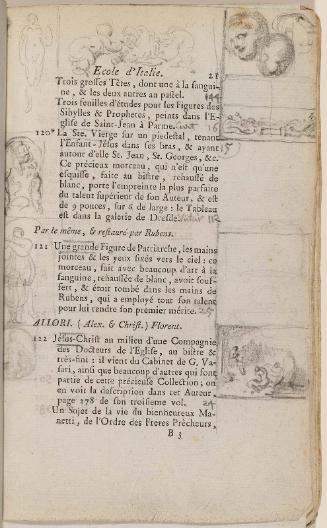 Ecole d'Italie. 21
Trois grosses Têtes, dont une à la sangui-
ne, & les deux autres au pastel.
Trois feuilles d'études pour les Figures des
Sibylles & Prophetes, peints dans l'E-
glise de Saint-Jean à Parme. 16
120* La Ste. Vierge sur un piedestal, tenant
l'Enfant-Jésus dans ses bras, & ayant 5
autour d'elle St. Jean, St. Georges, &c.
Ce précieux morceau, qui n'est qu'une
esquisse, faite au bistre, rehaussé de
blanc, porte l'empreinte la plus parfaite
du talent supérieur de son Auteur, & est
de 9 pouces, sur 6 de large: le Tableau
est dans la galerie de Dresde. 112
Par le même, & restauré par Rubens.
121 Une grande Figure de Patriarche, les mains
jointes & les yeux fixés vers le ciel: ce
morceau, fait avec beaucoup d'art à la
sanguine, rehaussée de blanc, avoit souf-
fert, & étoit tombé dans les mains de
Rubens, qui a employé tout son talent
pour lui rendre son premier mérite. 25
ALLORI. (Alex. & Christ.) Florent.
122 Jésus-Christ au milieu d'une Compagnie
des Docteurs de l'Eglise, au bistre &
très-fini: il vient du Cabinet de G. Va-
sari, ainsi que beaucoup d'autres qui font
partie de cette précieuse Collection; on
en voit la description dans cet Auteur,
page 278 de son troisieme vol. 24
Un Sujet de la vie du bienheureux Ma-
netti, de l'Ordre des Freres Prêcheurs,
B 3